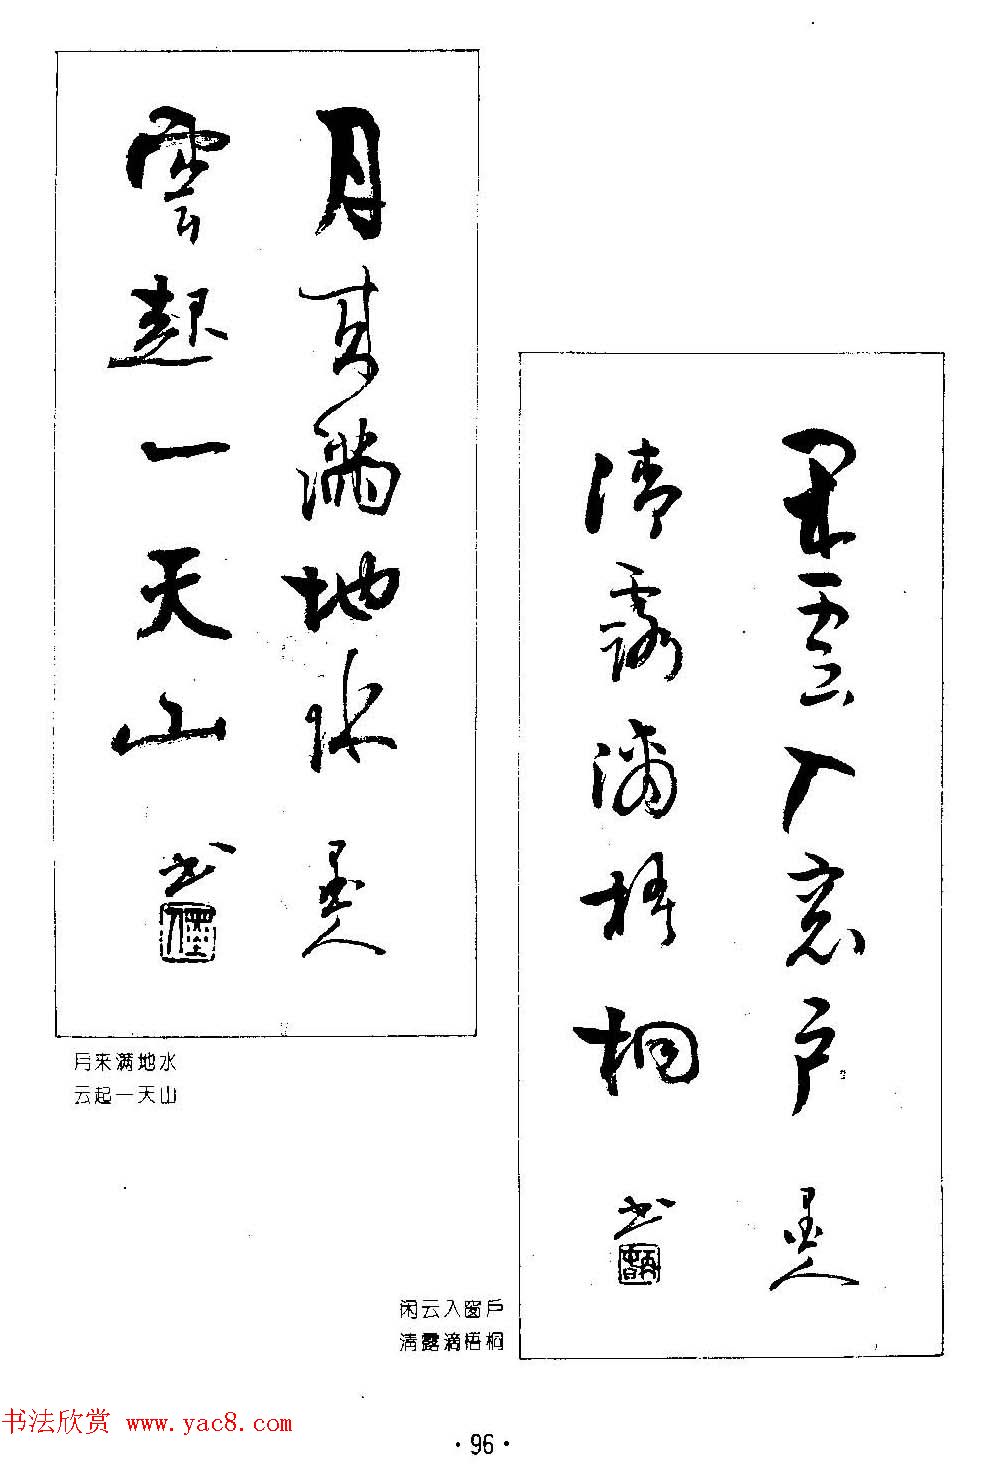 月来滿地水
雲起一天山
墨人
书
月来满地水
云起一天山
闲雲入窗户
清露滴梧桐
墨人
书
闲云入窗户
清露滴梧桐
书法欣赏 www.yac8.com
·96·